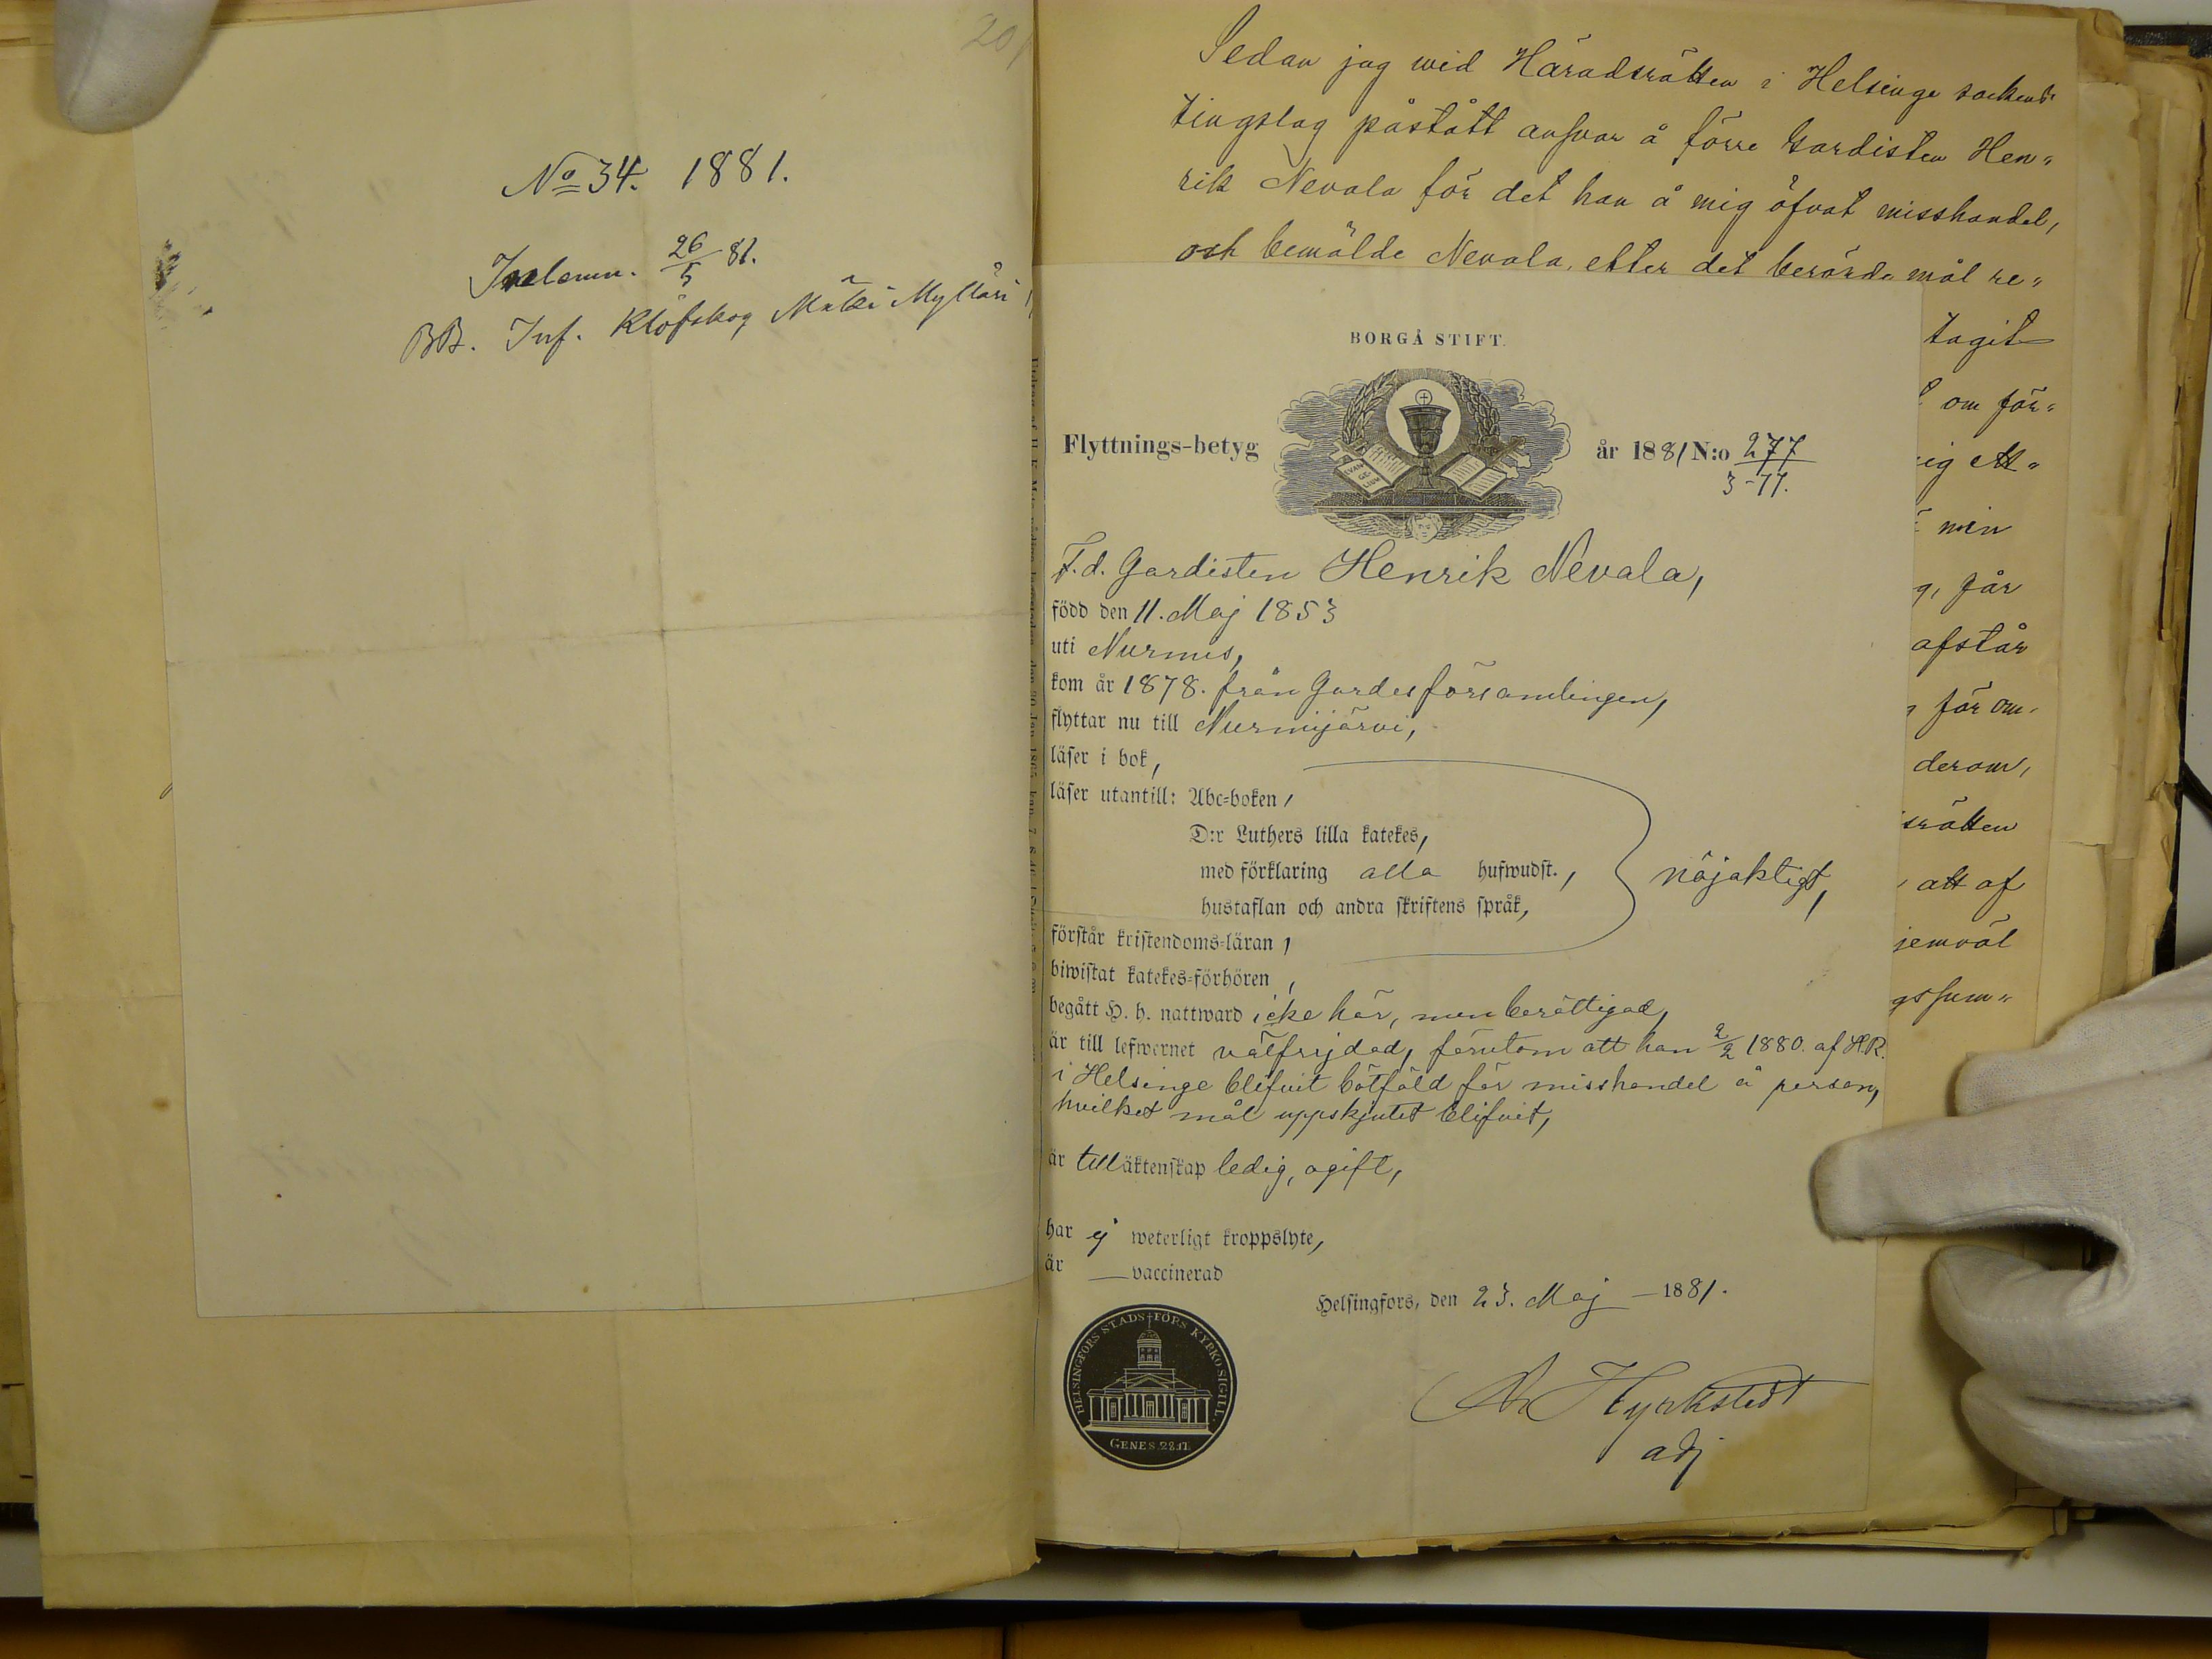 201
No 34. 1881.
Inlemn. 26/5 81.
BB. Inf. Klöfskog Mäki Mylläri
Sedan jag wid Häradsrätten i Helsinge sockens
tingslag påstått ansvar å förre Gardisten Hen„
rik Nevala för det han å mig öfvat misshandel,
och bemälde Nevala, efter det berörda mål re„
tagit
om för„
ig ett„
min
g, får
afstår
för om„
derom,
srätten
att af
jemväl
gssum„
BORGÅ STIFT.
Flyttnings-betyg
EVAN-
GE-
LIUM
år 1881 N:o 277
3-77.
F.d. Gardisten Henrik Nevala,
född den 11. Maj 1853
uti Nurmes,
kom år 1878. från Gardesförsamlingen,
flyttar nu till Nurmijärvi,
läser i bok,
läser utantill: Abc-boken,
D:r Luthers lilla katekes,
med förklaring alla hufwudst.,
hustaflan och andra skriftens språk,
nöjaktigt,
förstår kristendoms-läran,
biwistat katekes-förhören,
begått H. h. nattward icke här, men berättigad,
är till lefwernet välfrejdad, förutom att han 2/2 1880. af H.R.
i Helsinge blifvit bötfäld för misshandel å person,
hvilket mål uppskjutet blifvit,
är till äktenskap ledig, ogift,
har ej weterligt kroppslyte,
är — vaccinerad
Helsingfors, den 23. Maj — 1881.
HELSINGFORS STADS FÖRS KYRKO SIGILL.
GENES. 28.17.
Hyrkstedt
adj